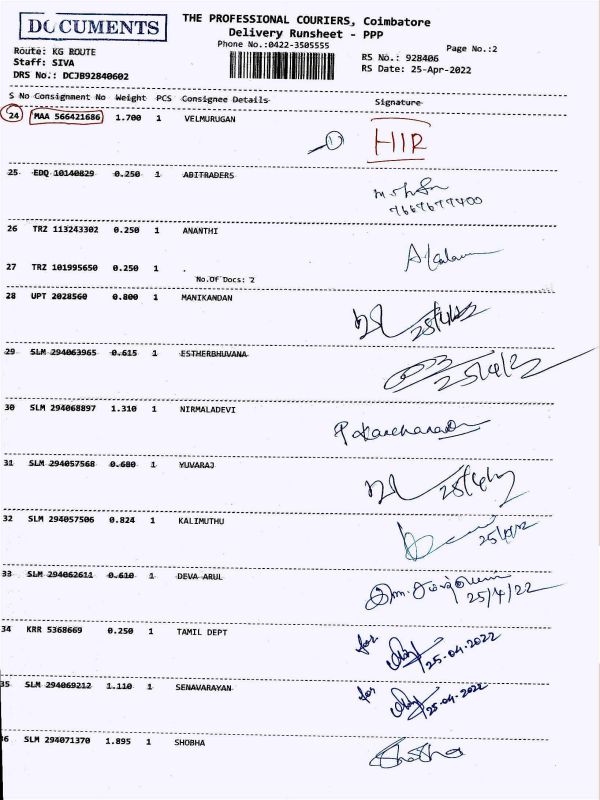 DOCUMENTS
THE PROFESSIONAL COURIERS, Coimbatore
Delivery Runsheet - PPP
Phone No.:0422-3505555
Page No.:2
Route: KG ROUTE
Staff: SIVA
DRS No.: DCJB92840602
RS No.: 928406
RS Date: 25-Apr-2022
S No Consignment No Weight PCS Consignee Details Signature
24 MAA 566421686 1.700 1 VELMURUGAN
HIR
25 EDQ 10140829 0.250 1 ABITRADERS
7667677400
26 TRZ 113243302 0.250 1 ANANTHI
27 TRZ 101995650 0.250 1 .
No.Of Docs: 2
28 UPT 2028560 0.800 1 MANIKANDAN
25/4/22
29 SLM 294063965 0.615 1 ESTHERBHUVANA
25/4/22
30 SLM 294068897 1.310 1 NIRMALADEVI
31 SLM 294057568 0.680 1 YUVARAJ
25/4/22
32 SLM 294057506 0.824 1 KALIMUTHU
33 SLM 294062611 0.610 1 DEVA ARUL
25/4/22
34 KRR 5368669 0.250 1 TAMIL DEPT
for 25.04.2022
35 SLM 294069212 1.110 1 SENAVARAYAN
for 25.04.2022
36 SLM 294071370 1.895 1 SHOBHA
Shobha